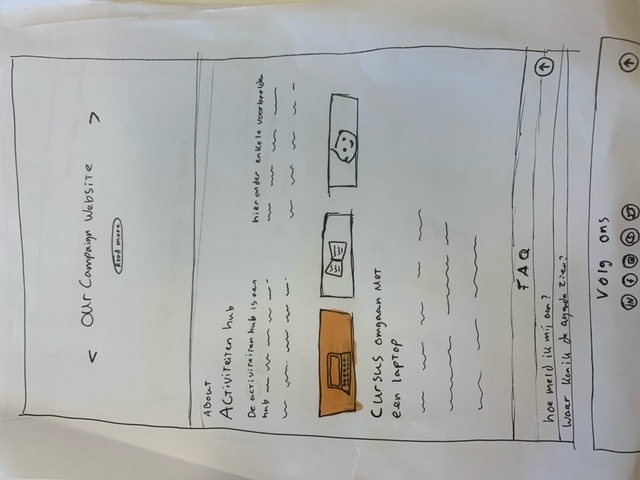 < Our Campaign Website >
Read more
About
Activiteiten hub
De activiteiten hub is een
hub
hieronder enkele voorbeelden
Cursus omgaan met
een laptop
FAQ
hoe meld ik mij aan?
waar kan ik de agenda zien?
Volg ons
in f